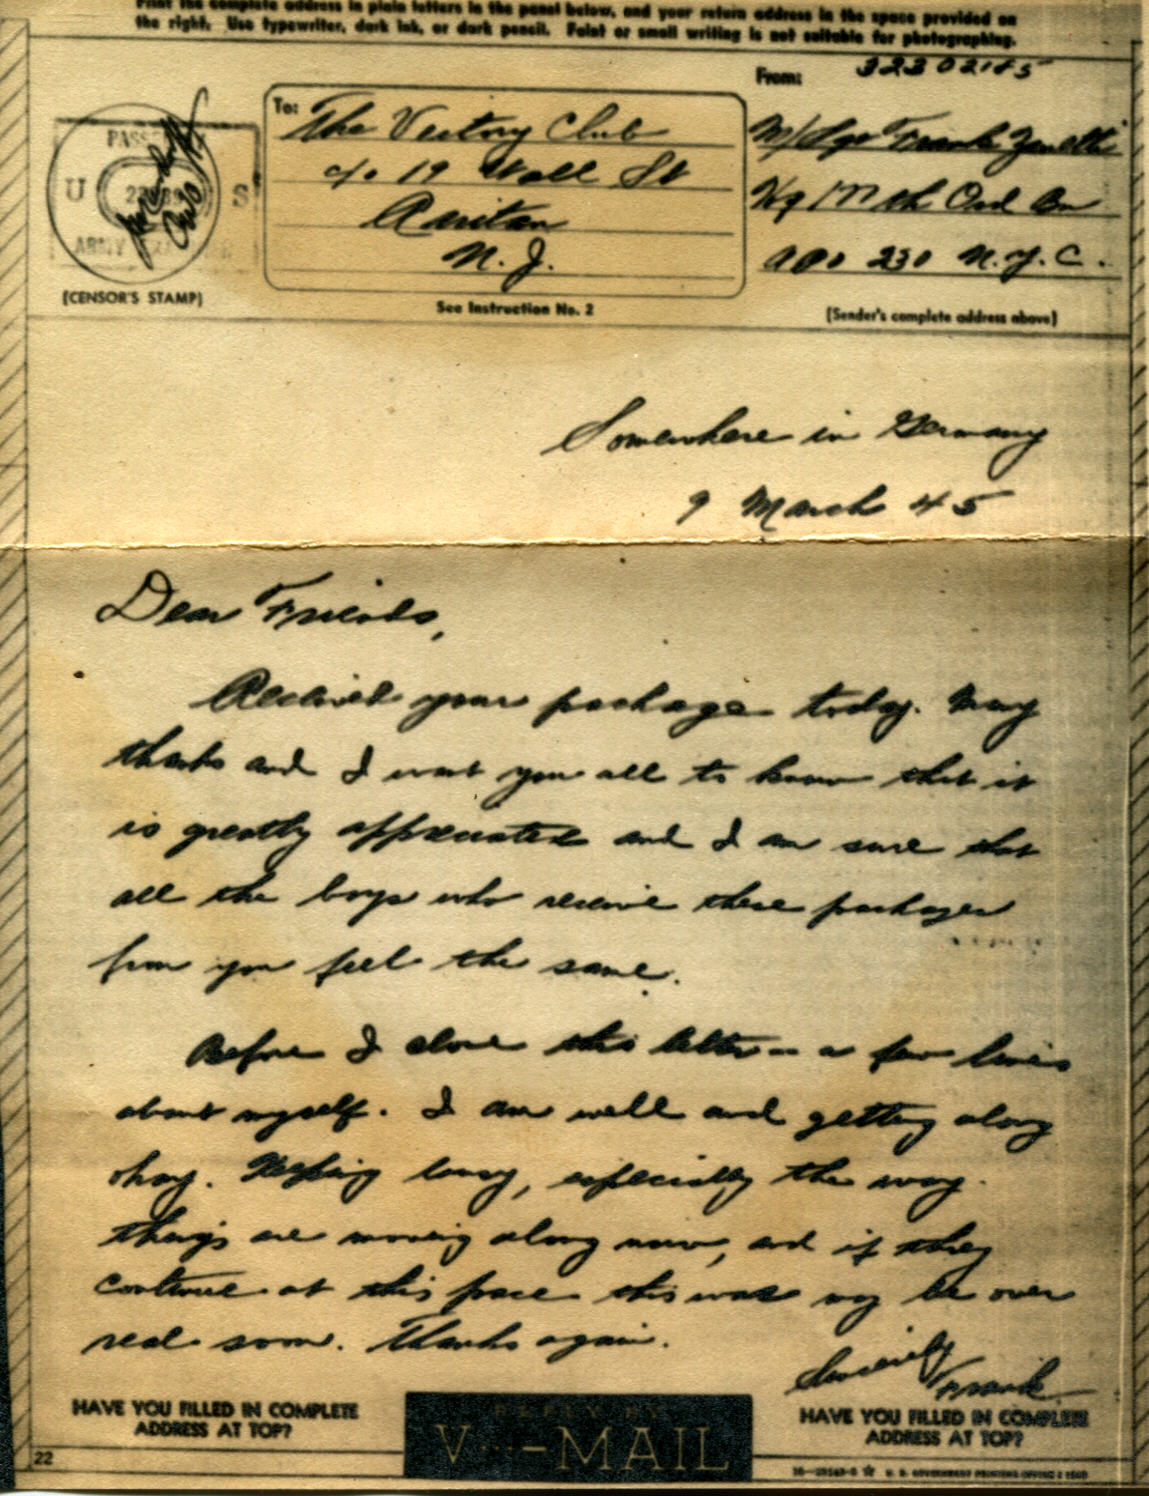 Print the complete address in plain letters in the panel below, and your return address in the space provided on
the right. Use typewriter, dark ink, or dark pencil. Faint or small writing is not suitable for photographing.
From: 32302185
To: The Victory Club
c/o 19 Wall St
Raritan
N. J.
M/Sgt Frank Zanetti
Hq 177th Ord Bn
APO 230 N.Y.C.
U S
ARMY
(CENSOR'S STAMP)
See Instruction No. 2
(Sender's complete address above)
Somewhere in Germany
9 March 45
Dear Friends,
Received your package today. Many
thanks and I want you all to know that it
is greatly appreciated and I am sure that
all the boys who receive these packages
from you feel the same.
Before I close this letter — a few lines
about myself. I am well and getting along
okay. Keeping busy, especially the way
things are moving along now, and if they
continue at this pace this war may be over
real soon. Thanks again.
Sincerely
Frank
HAVE YOU FILLED IN COMPLETE
ADDRESS AT TOP?
V···—MAIL
HAVE YOU FILLED IN COMPLETE
ADDRESS AT TOP?
22
U. S. GOVERNMENT PRINTING OFFICE